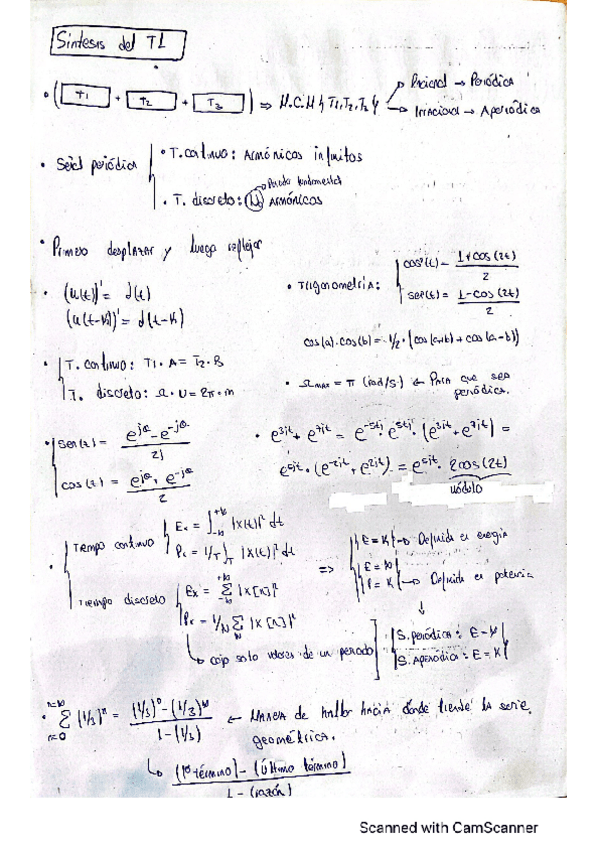 Síntesis del T1
• ( T1 + T2 + T3 ) ⇒ M.C.M {T1, T2, T3} → Racional → Periódica
→ Irracional → Aperiódica
• Señal periódica • T. continuo: Armónicos infinitos
• T. discreto: N armónicos → Periodo fundamental
• Primero desplazar y luego reflejar
• (u(t))' = d(t)
(u(t-k))' = d(t-k)
• Trigonometría: cos²(t) = 1+cos(2t) / 2
sen²(t) = 1-cos(2t) / 2
cos(a)·cos(b) = 1/2·(cos(a+b) + cos(a-b))
• T. continuo: T1·A = T2·B
T. discreto: Ω·N = 2π·m
• Ωmax = π (rad/s) ← Para que sea
periódica.
• sen(t) = e^jθ - e^-jθ / 2j
cos(t) = e^jθ + e^-jθ / 2
• e^3jt + e^7jt = e^-5tj · e^5tj · (e^3jt + e^7jt) =
e^5jt · (e^-2jt + e^2jt) = e^5jt · 2cos(2t)
módulo
• Tiempo continuo Ex = ∫ |x(t)|² dt
Px = 1/T ∫T |x(t)|² dt
Tiempo discreto Ex = Σ |x[n]|²
Px = 1/N Σ |x[n]|²
N
↳ cojo solo valores de un periodo
⇒ E = K → Definida en energía
E = ∞
P = K → Definida en potencia
↓
S. periódica: E = ∞
S. Aperiódica: E = K
• Σ (1/3)^n = (1/3)^0 - (1/3)^∞ / 1-(1/3) ← Manera de hallar hacia dónde tiende la serie
n=0 geométrica.
↳ (1º término) - (último término) / 1 - (razón)
Scanned with CamScanner